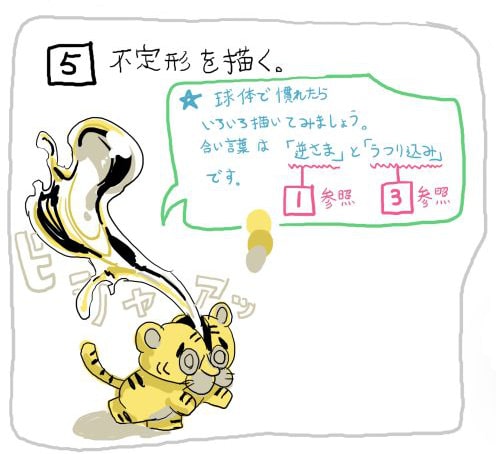 5 不定形を描く。
☆ 球体で慣れたら
いろいろ描いてみましょう。
合い言葉は「逆さま」と「うつり込み」
です。
1 参照 3 参照
ビシャアッ